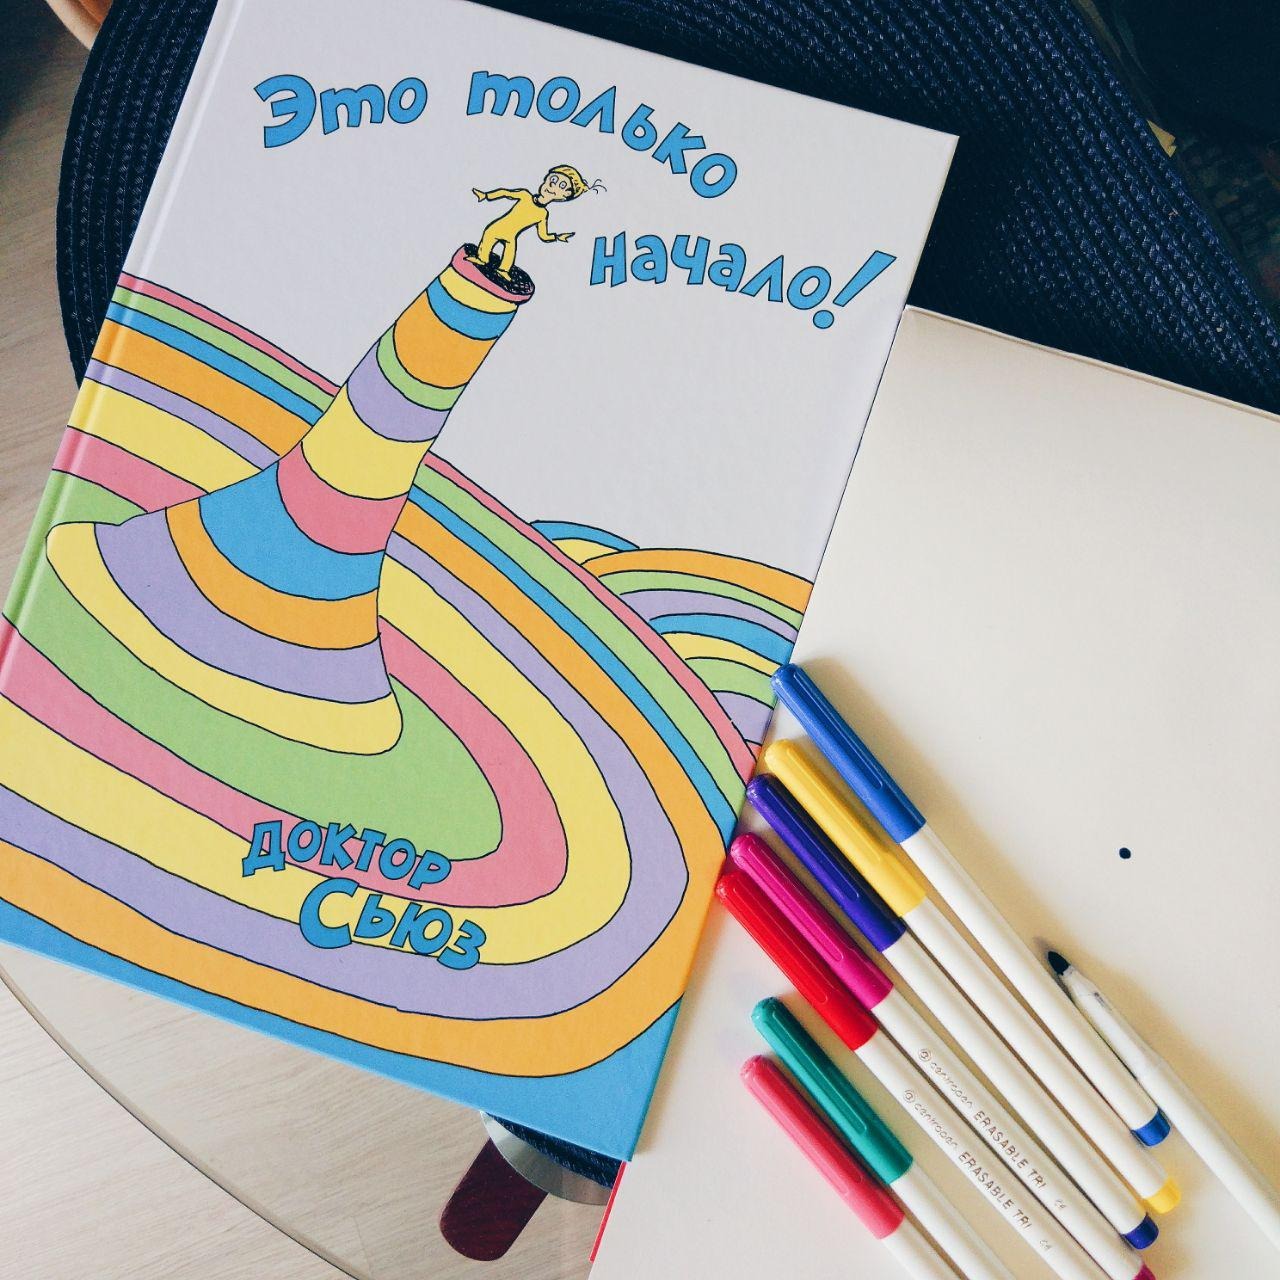 Это только
начало!
ДОКТОР
Сьюз
@centropen ERASABLE TRI
@centropen ERASABLE TRI